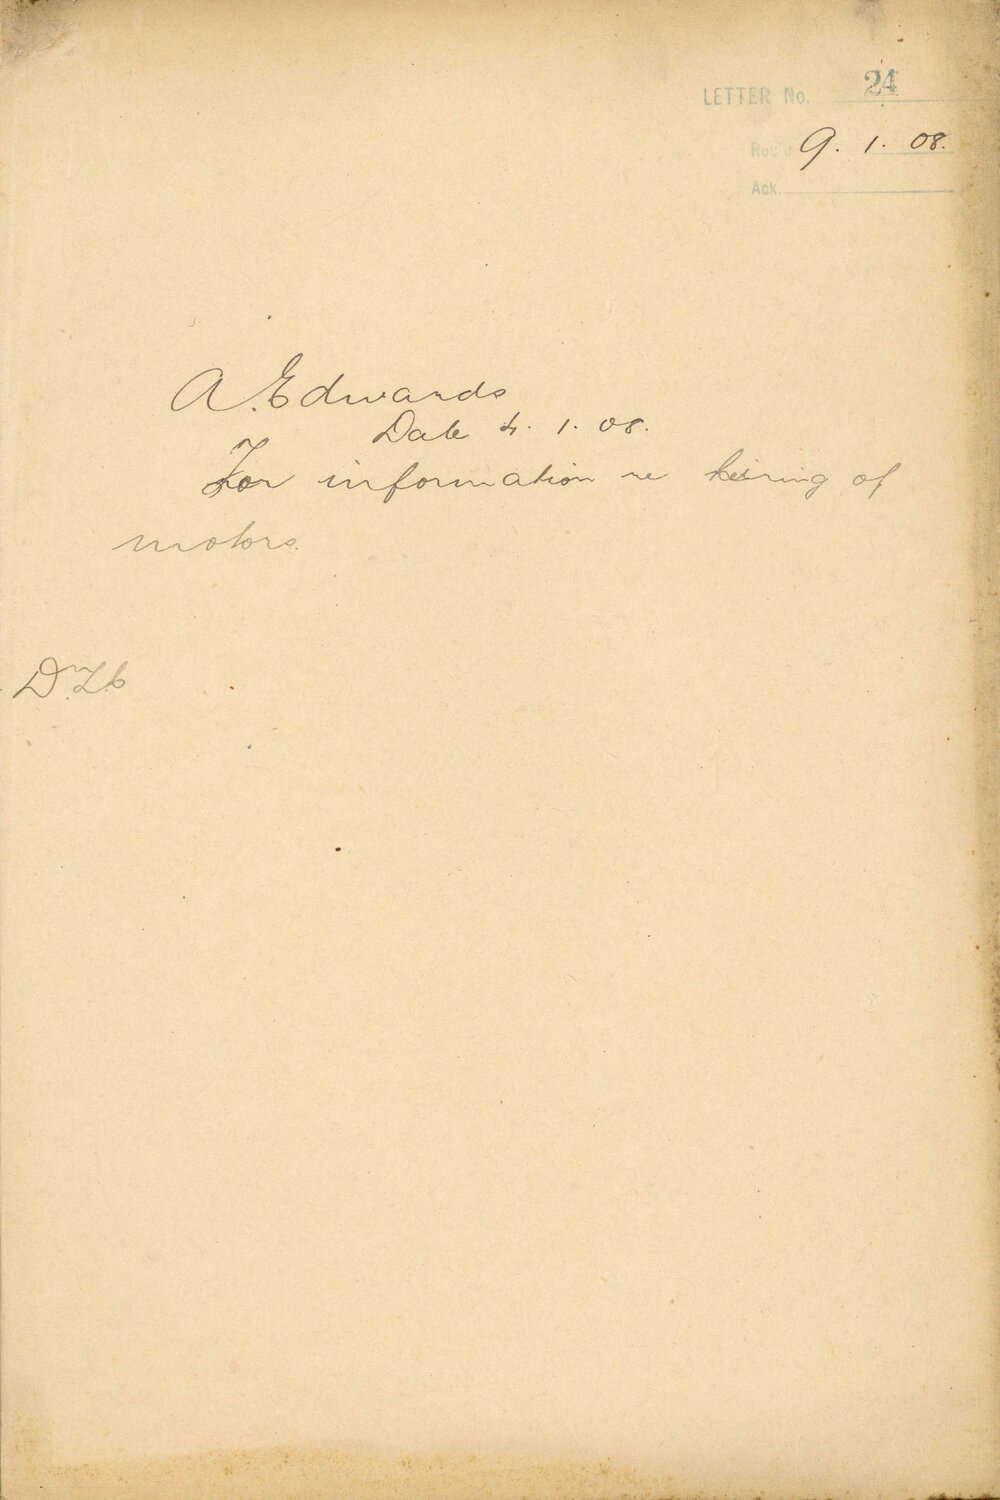 LETTER No. 24
Rec'd 9. 1. 08.
Ack.
A. Edwards
Date 4. 1. 08.
For information re heiring of
motors.